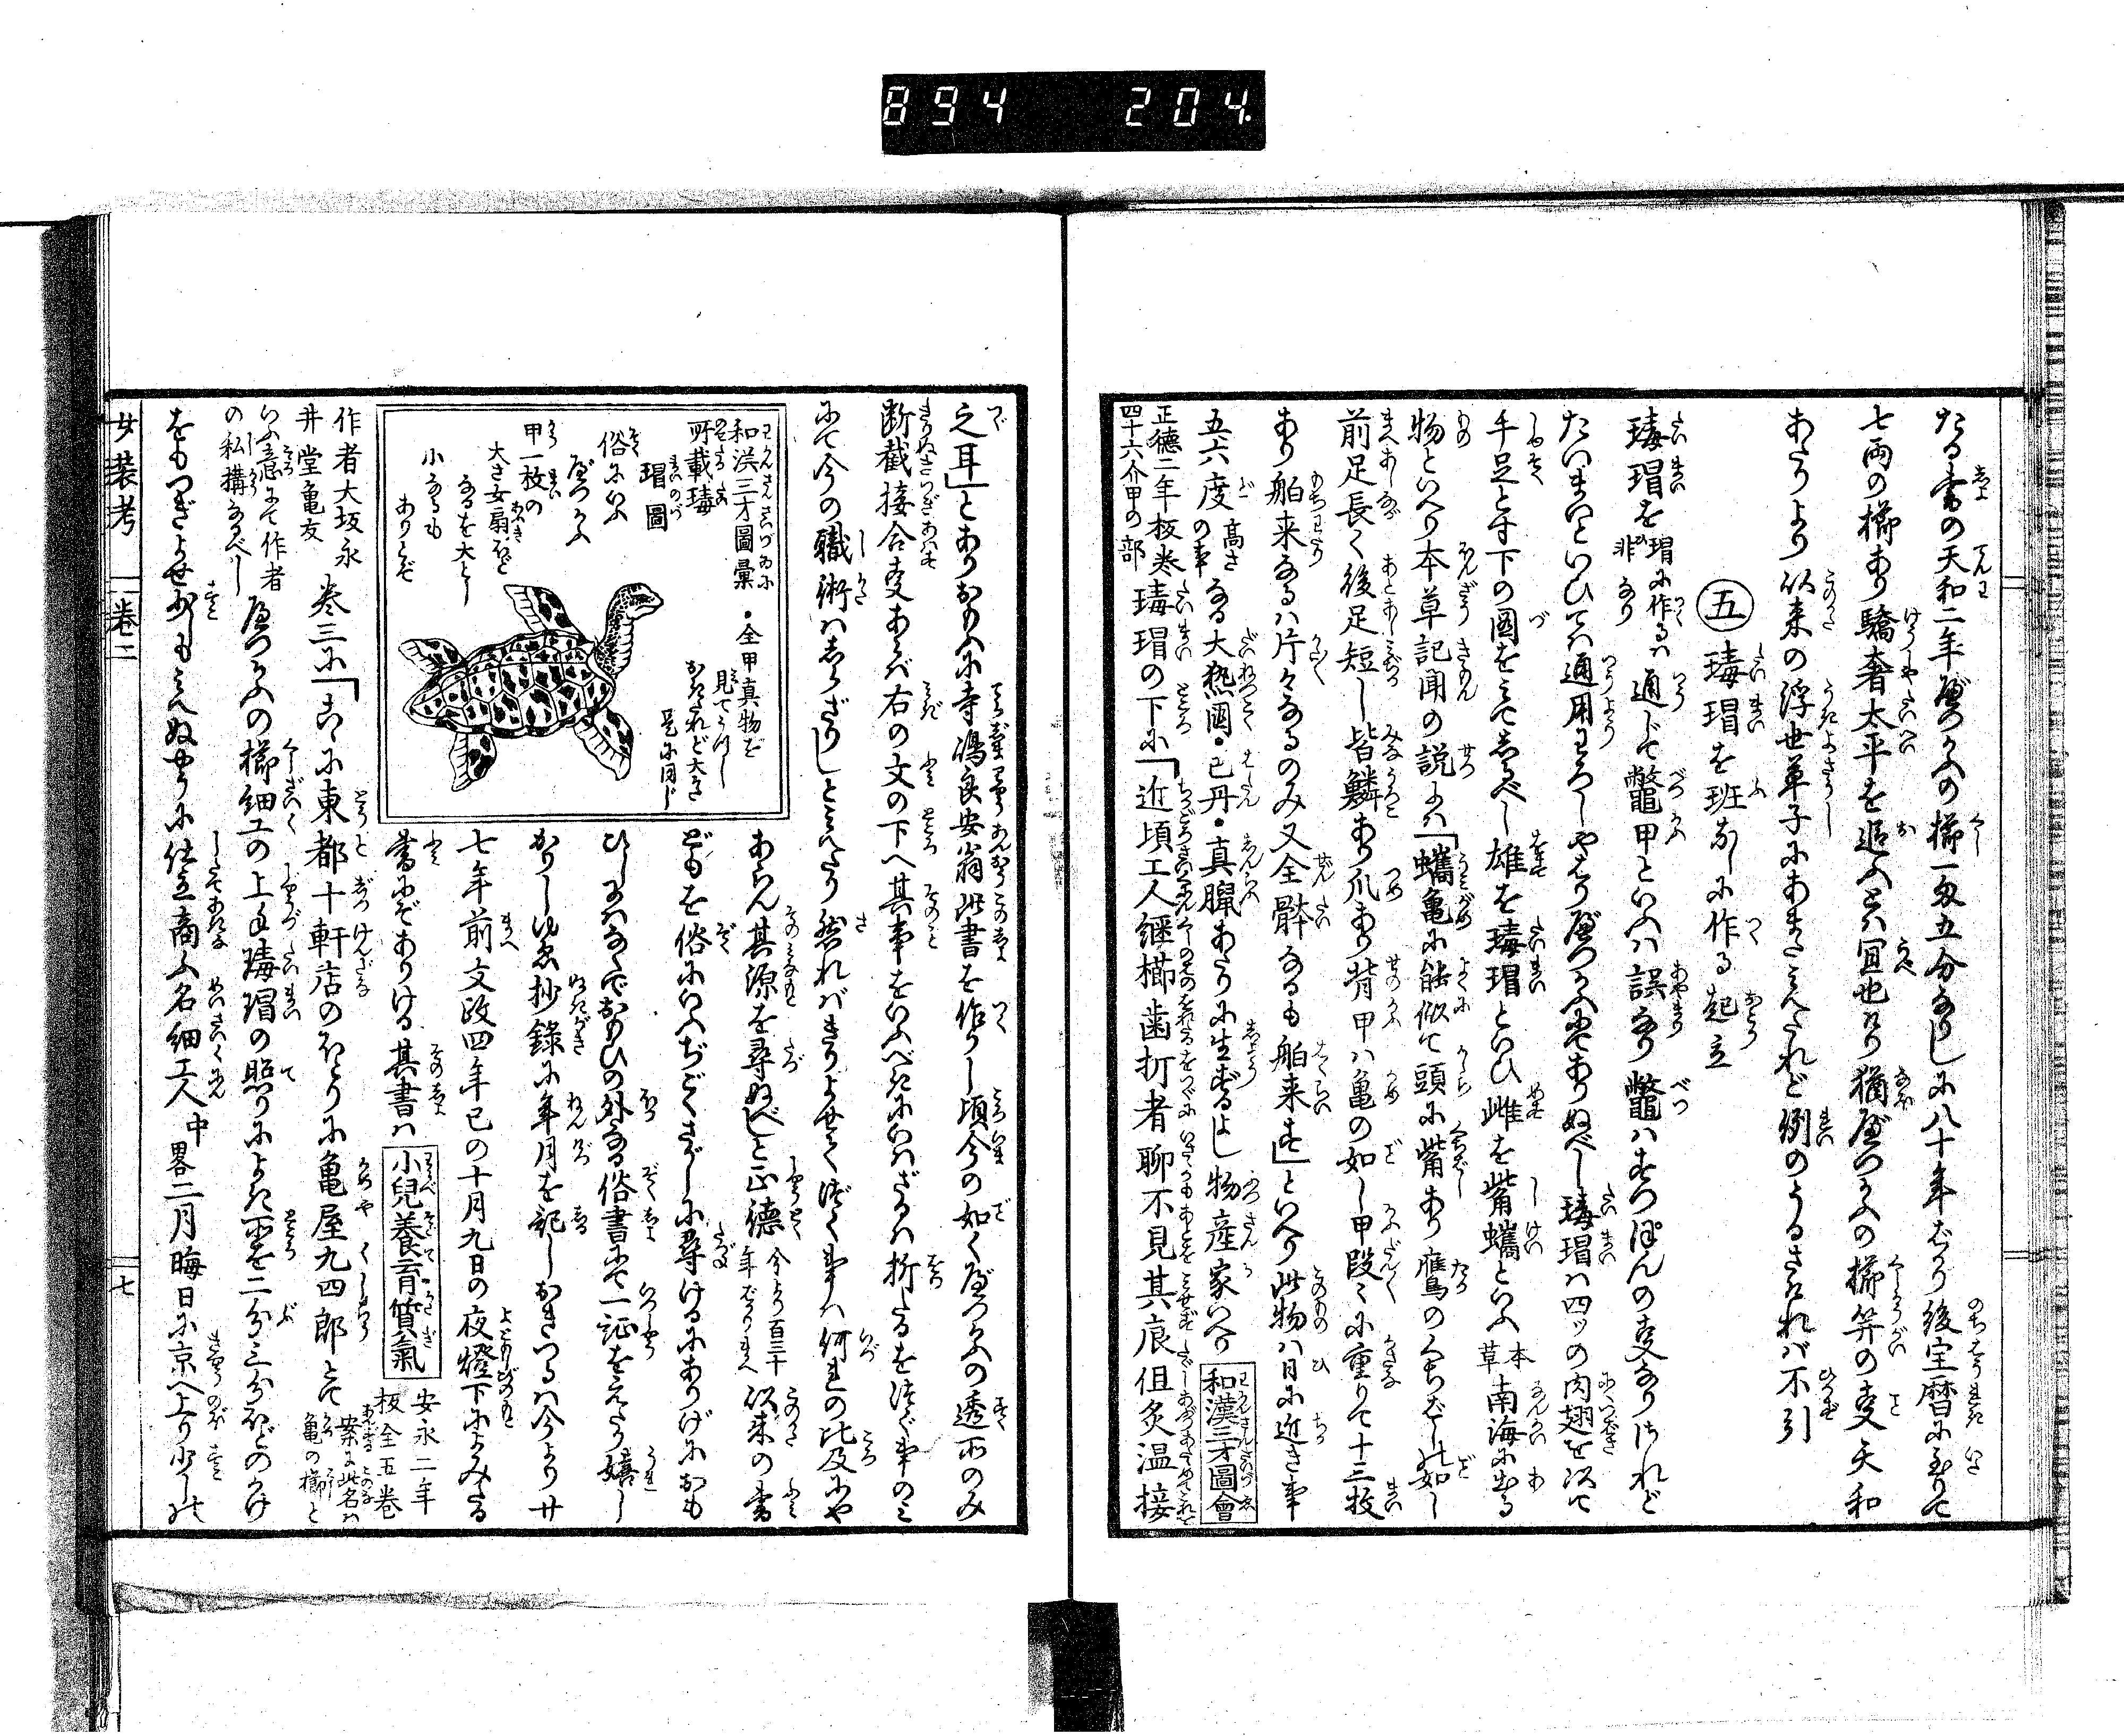 894 204
たる書の天和二年べつかふの櫛一匁五分なりしに八十年ばかり後宝暦に至りて
七両の櫛あり驕奢太平を追ふとは宜也けり猶べつかふの櫛笄の事天和
あたりより以来の浮世草子にあまた見えたれど例のうるさければ不引
五 瑇瑁を斑なしに作る起立
瑇瑁を瑁に作るは非なり通じて鼈甲といふは誤なり鼈はすつぽんの事なりけれど
たいまいといひては通用わろしやはりべつかふにてありぬべし瑇瑁は四ツの肉翅を以て
手足とす下の図を見てしるべし雄を瑇瑁といひ雌を觜蠵といふ本草南海に出る
物といへり本草記聞の説には「蠵亀に能似て頭に觜あり鷹のくちばしの如し
前足長く後足短し皆鱗あり爪あり背甲は亀の如し甲段々に重りて十三枚
あり舶来なるは片々なるのみ又全骵なるも舶来す」といへり此物は日に近き事
五六度高さの事なる大熱國・巴丹・真臘あたりに生ずるよし物産家いへり和漢三才圖會
正徳二年板巻四十六介甲の部瑇瑁の下に「近頃工人継櫛歯折者聊不見其痕但炙温接
之耳」とありおもふに寺嶋良安翁此書を作りし頃今の如くべつかふの透所のみ
断截接合事あらば右の文の下へ其事をいふべきにいはざるは折たるを つぐ事のミ
にて今の職術はあらざりしと見えたり然ればきりよせてつぐ事は何れの比及にや
あらん其源を尋ぬべしと正徳今より百三十年ばかりまへ以来の書
どもを俗にいへぢごくさがしに尋けるにありげにおも
ひしにはなくておもひの外なる俗書にて一証をえたり嬉し
かりしゆゑ抄録に年月を記しおきつるは今より廿
七年前文政四年巳の十月九日の夜燈下によみたる
書にぞありける其書は小兒養育質氣安永二年板全五巻
作者大坂永井堂亀友巻三に「こゝに東都十軒店のほとりに亀屋九四郎とて案に此名は亀の櫛と
いふ意にて作者の私構なるべしべつかふの櫛細工の上手瑇瑁の照りによき所を二分三分ほどのかけ
をもつぎよせ少しも見えぬやうに仕立商ふ名細工人中畧二月晦日に京へ上り少しの
和漢三才圖彙に
所載瑇
瑁圖
俗にいふ
べつかふ
甲一枚の
大さ女扇ほど
なるを大とし
小なるも
ありとぞ
・全甲真物を
見てうつし
おきたれど大さ
是に同じ
女装考 卷二 七